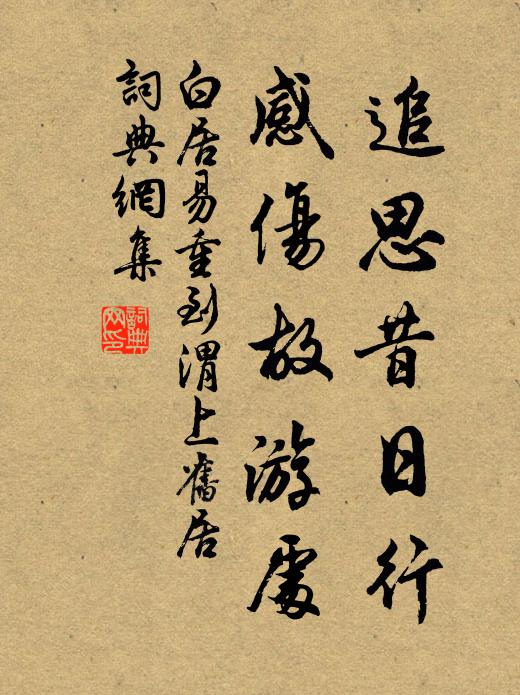 追思昔日行
感傷故游處
白居易重到渭上舊居
詞典網集
詞典
网印